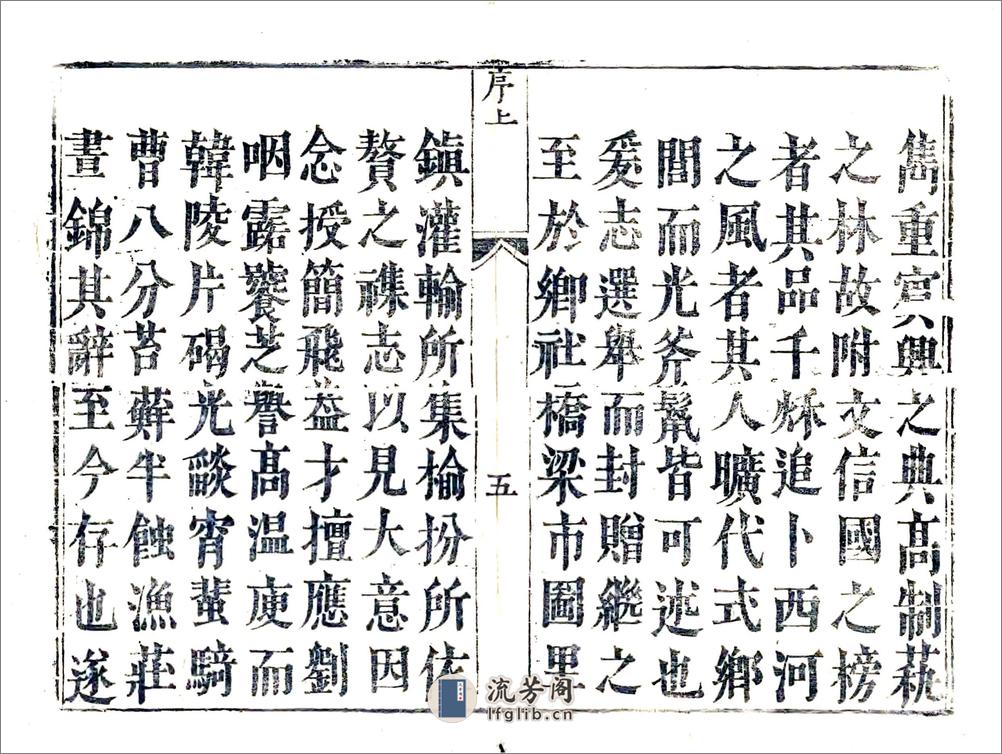 雋重賔興之典髙制萟
之林故附文信國之榜
者其品千秌追卜西河
之風者其人曠代式鄉
間而光斧鬣皆可述也
爰志選舉而封贈繼之
至於鄉社橋梁市圖里
序上
五
鎭灌輸所集榆扮所佐
贅之襍志以見大意因
念授簡飛益才擅應劉
咽露饔芝譽髙温庾而
韓陵片碣光燄宵蜚騎
曹八分苔蘚半蝕漁莊
晝錦其辭至今存也遂
流芳阁
lfglib.cn